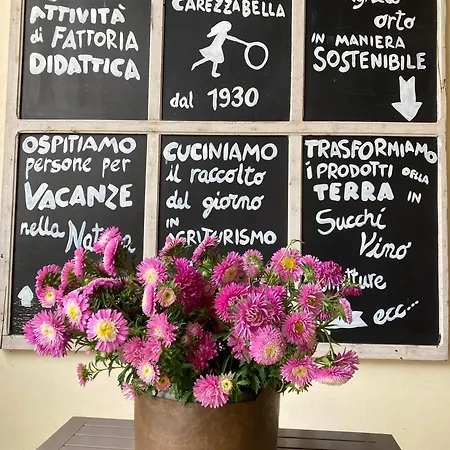 ATTIVITÀ
di FATTORIA
DIDATTICA
CAREZZABELLA
dal 1930
orto
IN MANIERA
SOSTENIBILE
OSPITIAMO
persone per
VACANZE
nella Natura
CUCINIAMO
il raccolto
del giorno
IN
AGRITURISMO
TRASFORMIAMO
I PRODOTTI DELLA
TERRA IN
Succhi
Vino
ecc...